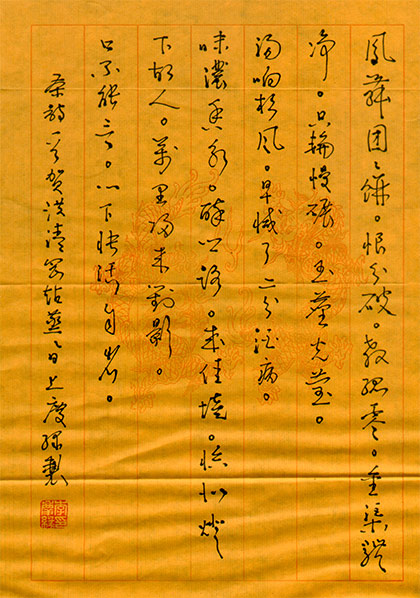 鳳舞團〻餅。恨分破。教孤零。金渠體
淨。只輪慢碾。玉塵光瑩。
湯响松風。早減了二分酒病。
味濃香永。醉鄉路。成佳境。恰如燈
下故人。萬里歸來對影。
口不能言。心下快活自省。
賀洪清 日上 製